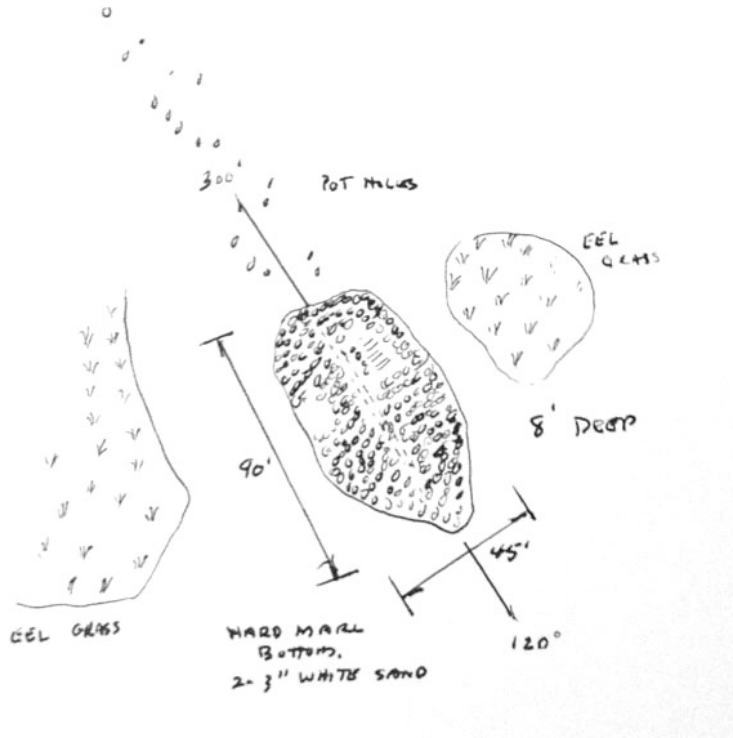 300'
POT HOLES
EEL
GRASS
8' DEEP
90'
45'
120°
EEL GRASS
HARD MARL
BOTTOM.
2-3" WHITE SAND